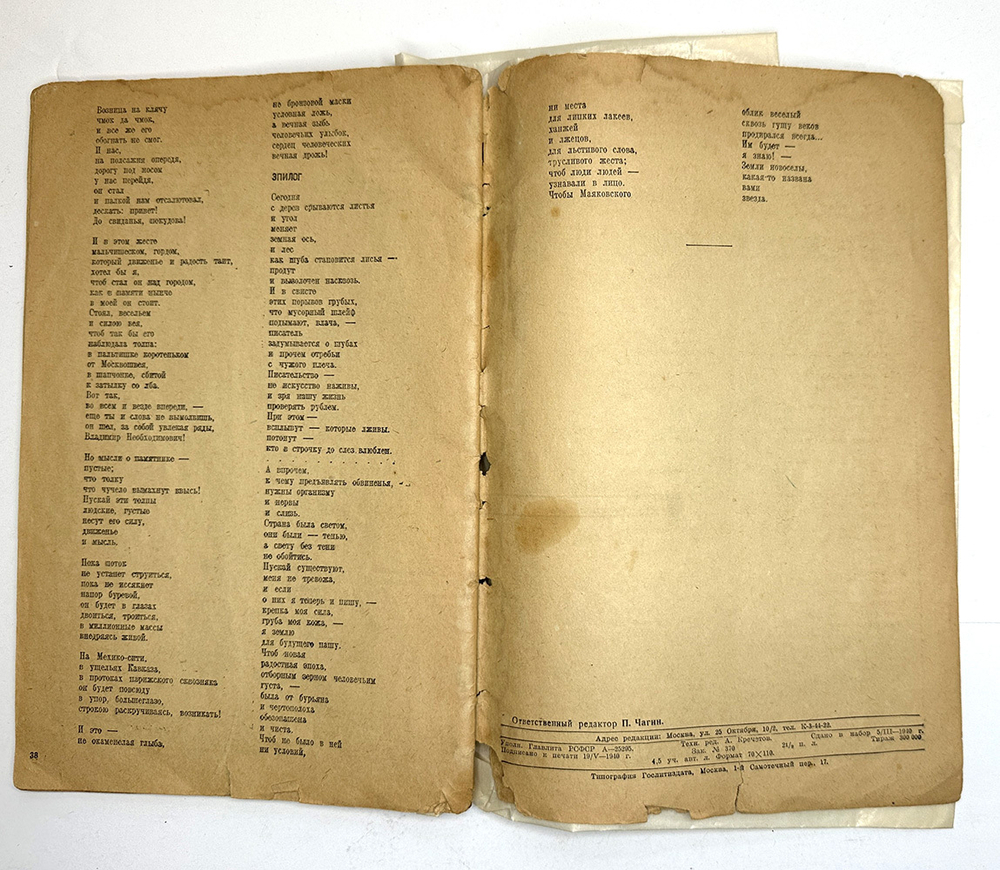 Возница на клячу
чмок да чмок,
и все же его
обогнать не смог.
И нас,
на полсажня опередя,
дорогу под носом
у нас перейдя,
он стал
и палкой нам отсалютовал,
дескать: привет!
До свиданья, покудова!
И в этом жесте
мальчишеском, гордом,
который движенье и радость таит,
хотел бы я,
чтоб стал он над городом,
как в памяти нынче
в моей он стоит.
Стоял, весельем
и силою вея,
чтоб так бы его
наблюдала толпа:
в пальтишке коротеньком
от Москвошвея,
в шапчонке, сбитой
к затылку со лба.
Вот так,
во всем и везде впереди, —
еще ты и слова не вымолвишь,
он шел, за собой увлекая ряды,
Владимир Необходимович!
Но мысли о памятнике —
пустые;
что толку
что чучело вымахнут ввысь!
Пускай эти толпы
людские, густые
несут его силу,
движенье
и мысль.
Пока поток
не устанет струиться,
пока не иссякнет
напор буревой,
он будет в глазах
двоиться, троиться,
в миллионные массы
внедряясь живой.
На Мехико-сити,
в ущельях Кавказа,
в протоках парижского сквозняка
он будет повсюду
в упор, большеглазо,
строкою раскручиваясь, возникать!
И это —
не окаменелая глыба,
38
не бронзовой маски
условная ложь,
а вечная зыбь
человечьих улыбок,
сердец человеческих
вечная дрожь!
ЭПИЛОГ
Сегодня
с дерев срываются листья
и угол
меняет
земная ось,
и лес
как шуба становится лисья —
продут
и вызолочен насквозь.
И в свисте
этих порывов грубых,
что мусорный шлейф
подымают, влача, —
писатель
задумывается о шубах
и прочем отребьи
с чужого плеча.
Писательство —
не искусство наживы,
и зря нашу жизнь
проверять рублем.
При этом —
всплывут — которые лживы.
потонут —
кто в строчку до слез влюблен.
. . . . . . . . . . . .
А впрочем,
к чему предъявлять обвиненья, —
нужны организму
и нервы
и слизь.
Страна была светом,
они были — тенью,
а свету без тени
не обойтись.
Пускай существуют,
меня не тревожа,
и если
о них я теперь и пишу, —
крепка моя сила,
груба моя кожа, —
я землю
для будущего пашу.
Чтоб новая
радостная эпоха,
отборным зерном человечьим
густа, —
была от бурьяна
и чертополоха
обезопашена
и чиста.
Чтоб не было в ней
ни условий,
ни места
для лицких лакеев,
ханжей
и лжецов,
для льстивого слова,
трусливого жеста;
чтоб люди людей —
узнавали в лицо.
Чтобы Маяковского
облик веселый
сквозь гущу веков
продирался всегда...
Им будет —
я знаю! —
Земли новоселы,
какая-то названа
вами
звезда.
Ответственный редактор П. Чагин.
Адрес редакции: Москва, ул. 25 Октября, 10/2, тел. К-3-44-22.
Уполн. Главлита РСФСР А—25295. Техн. ред. А. Кречетов. Сдано в набор 5/III—1940 г.
Подписано к печати 19/V—1940 г. Зак. № 370 2¼ п. л. Тираж 300 000
4,5 уч. авт. л. Формат 70×110.
Типография Гослитиздата, Москва, 1-й Самотечный пер., 17.